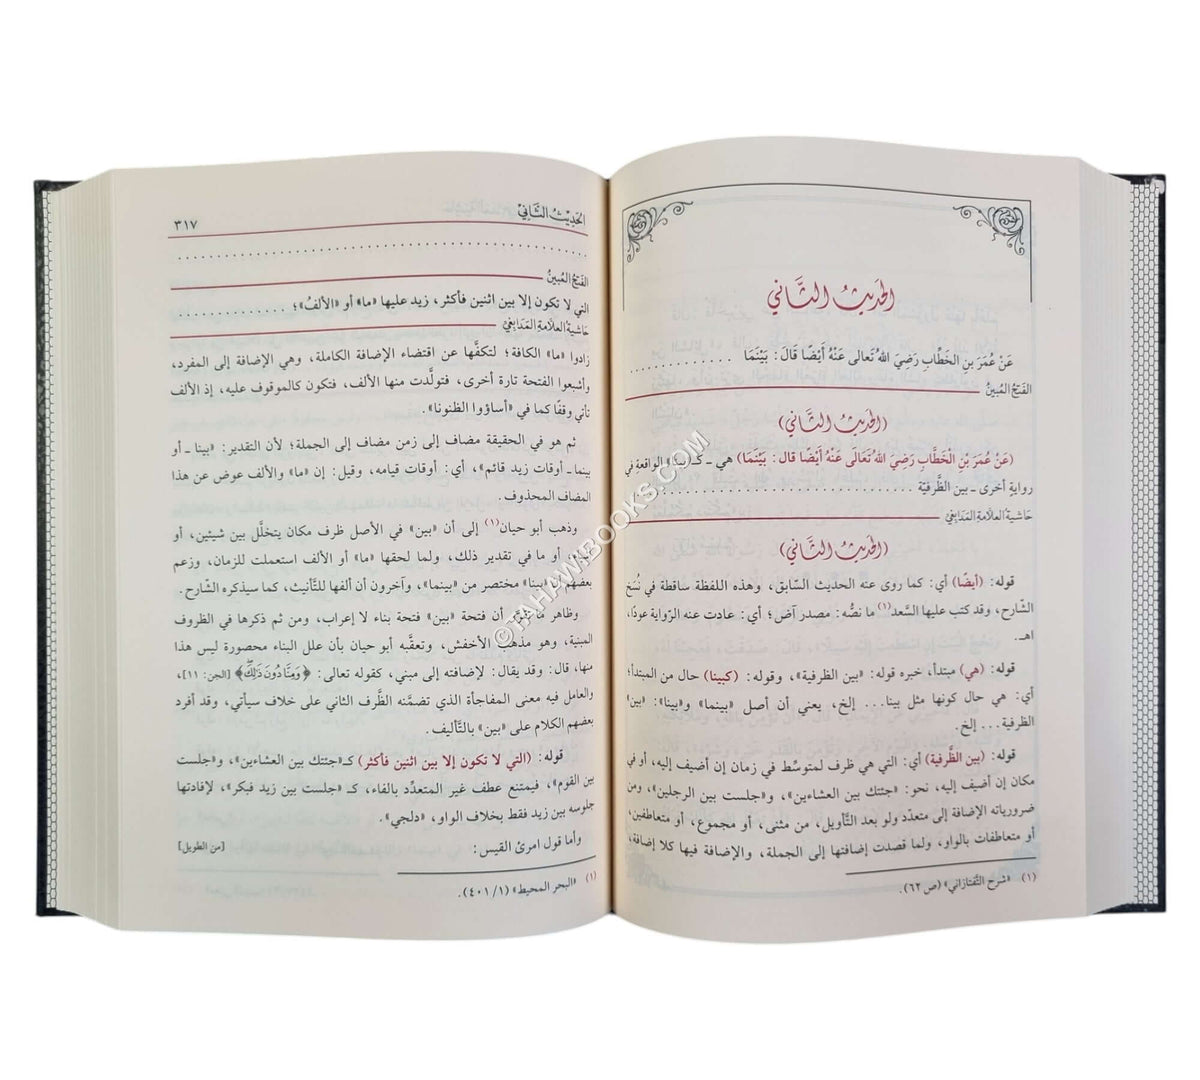 الحديث الثاني
عَنْ عُمَرَ بنِ الخَطَّابِ رَضِيَ اللهُ تَعالى عَنْهُ أَيْضًا قَالَ: بَيْنَمَا ..........
الفَتحُ المُبينُ
(الحديث الثَّاني)
(عَنْ عُمَرَ بنِ الخَطَّابِ رَضِيَ اللهُ تَعَالَى عَنْهُ أَيْضًا قال: بَيْنَمَا) هي ـ كـ«بينا» الواقعة في
رواية أخرى ـ بين الظَّرفيَّة ..............................
حَاشيةُ العَلَّامةِ المَدَابغيّ
(الحديث الثَّاني)
قوله: (أيضًا) أي: كما روى عنه الحديث السَّابق، وهذه اللفظة ساقطة في نُسَخ
الشَّارح، وقد كتب عليها السَّعد(١) ما نصُّه: مصدر آض؛ أي: عادت عنه الرِّواية عودًا،
اهـ.
قوله: (هي) مبتدأ، خبره قوله: «بين الظرفية»، وقوله: (كبينا) حال من المبتدأ؛
أي: هي حال كونها مثل بينا... إلخ، يعني أن أصل «بينما» و«بينا»: «بين»
الظرفية... إلخ.
قوله: (بين الظَّرفية) أي: التي هي ظرف لمتوسِّط في زمان إن أضيف إليه، أو في
مكان إن أضيف إليه، نحو: «جئتك بين العشاءين»، و«جلست بين الرجلين»، ومن
ضرورياته الإضافة إلى متعدِّد ولو بعد التَّأويل، من مثنى، أو مجموع، أو متعاطفين،
أو متعاطفات بالواو، ولما قصدت إضافتها إلى الجملة، والإضافة فيها كلا إضافة،
(١) «شرح التَّفتازاني» (ص ٦٢).
الحَدِيْثُ الثَّانِيْ ٣١٧
..............................
الفَتحُ المُبينُ
التي لا تكون إلا بين اثنين فأكثر، زيد عليها «ما» أو «الألفُ»؛ ..............
حَاشيةُ العَلَّامةِ المَدَابغيّ
زادوا «ما» الكافة؛ لتكفَّها عن اقتضاء الإضافة الكاملة، وهي الإضافة إلى المفرد،
وأشبعوا الفتحة تارة أخرى، فتولَّدت منها الألف، فتكون كالموقوف عليه، إذ الألف
تأتي وقفًا كما في «أساؤوا الظنونا».
ثم هو في الحقيقة مضاف إلى زمن مضاف إلى الجملة؛ لأن التقدير: «بينا ـ أو
بينما ـ أوقات زيد قائم»، أي: أوقات قيامه، وقيل: إن «ما» والألف عوض عن هذا
المضاف المحذوف.
وذهب أبو حيان(١) إلى أن «بين» في الأصل ظرف مكان يتخلَّل بين شيئين، أو
أو ما في تقدير ذلك، ولما لحقها «ما» أو الألف استعملت للزمان، وزعم
بعضهم «بينا» مختصر من «بينما»، وآخرون أن ألفها للتَّأنيث، كما سيذكره الشَّارح.
وظاهر ما أن فتحة «بين» فتحة بناء لا إعراب، ومن ثم ذكرها في الظروف
المبنية، وهو مذهب الأخفش، وتعقَّبه أبو حيان بأن علل البناء محصورة ليس هذا
منها، قال: وقد يقال: لإضافته إلى مبني، كقوله تعالى: ﴿وَمِنَّا دُونَ ذَٰلِكَ﴾ [الجن: ١١]،
والعامل فيه معنى المفاجأة الذي تضمنه الظَّرف الثاني على خلاف سيأتي، وقد أفرد
بعضهم الكلام على «بين» بالتَّأليف.
قوله: (التي لا تكون إلا بين اثنين فأكثر) كـ«جئتك بين العشاءين»، و«جلست
بين القوم»، فيمتنع عطف غير المتعدِّد بالفاء، كـ «جلست بين زيد فبكر»، لإفادتها
جلوسه بين زيد فقط بخلاف الواو، «دلجي».
وأما قول امرئ القيس: [من الطويل]
(١) «البحر المحيط» (٤٠١/١).
©TAHAWIBOOKS.COM